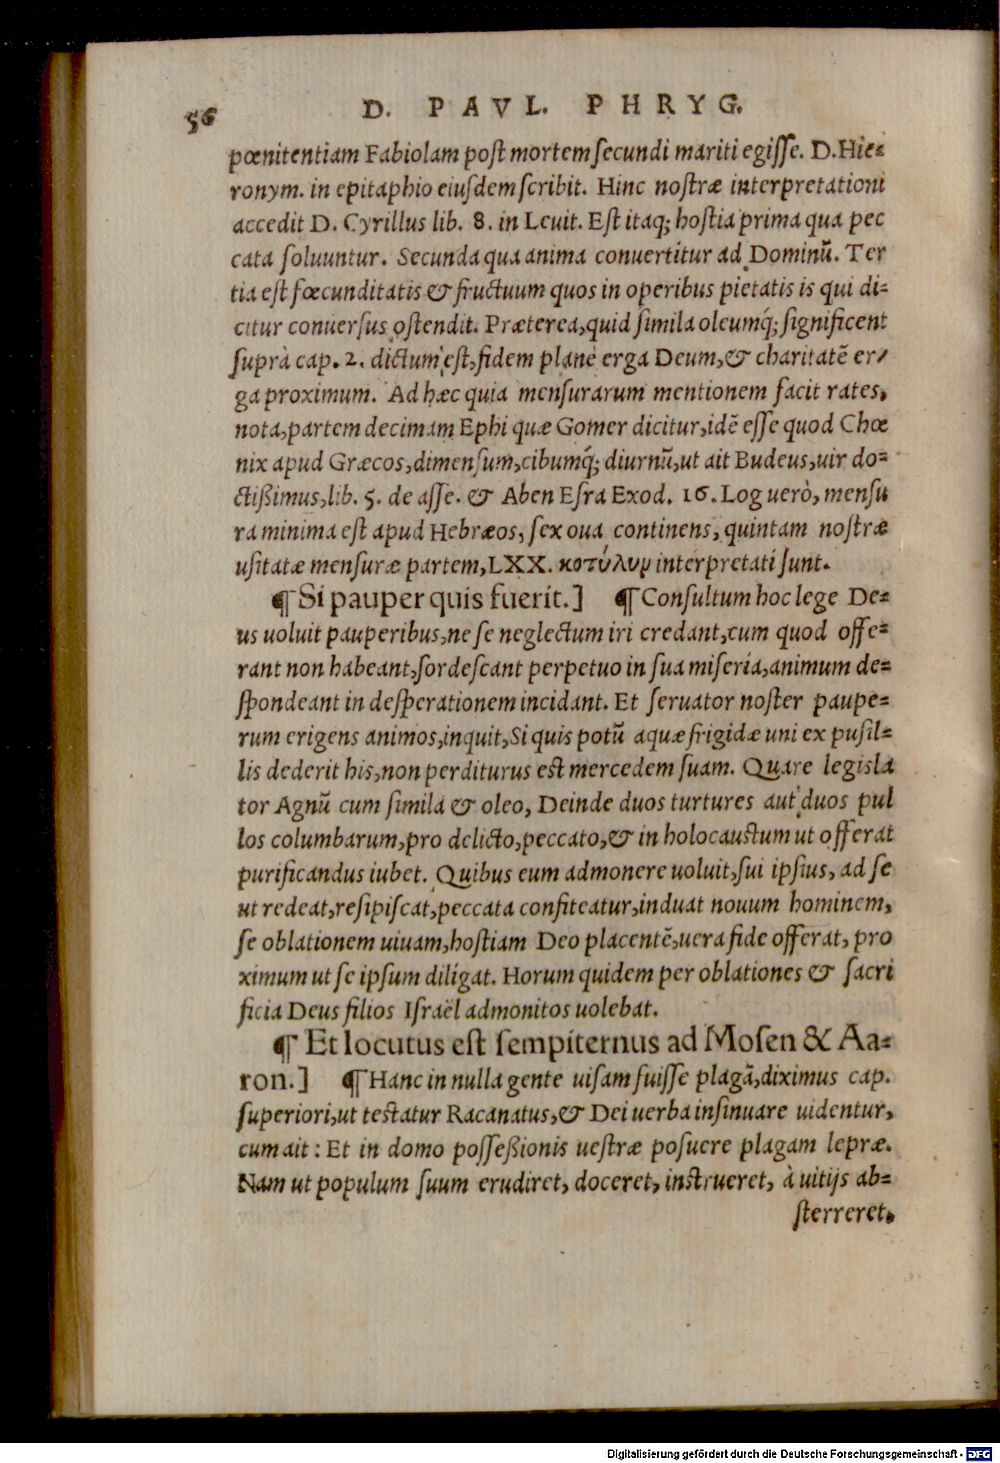 56
D. PAVL. PHRYG.
pœnitentiam Fabiolam post mortem secundi mariti egisse. D. Hie-
ronym. in epitaphio eiusdem scribit. Hinc nostræ interpretationi
accedit D. Cyrillus lib. 8. in Leuit. Est itaq; hostia prima qua pec
cata soluuntur. Secunda qua anima conuertitur ad Dominũ. Ter
tia est fœcunditatis & fructuum quos in operibus pietatis is qui di-
citur conuersus ostendit. Præterea, quid simila oleumq́; significent
suprà cap. 2. dictum est, fidem planè erga Deum, & charitatẽ er/
ga proximum. Ad hæc quia mensurarum mentionem facit rates,
nota, partem decimam Ephi quæ Gomer dicitur, idẽ esse quod Chœ
nix apud Græcos, dimensum, cibumq́; diurnũ, ut ait Budeus, uir do-
ctißimus, lib. 5. de asse. & Aben Esra Exod. 16. Log uerò, mensu
ra minima est apud Hebræos, sex oua continens, quintam nostræ
usitatæ mensuræ partem, LXX. κοτύλυρ interpretati sunt.
¶ Si pauper quis fuerit.] ¶ Consultum hoc lege De-
us uoluit pauperibus, ne se neglectum iri credant, cum quod offe-
rant non habeant, sordescant perpetuo in sua miseria, animum de-
spondeant in desperationem incidant. Et seruator noster paupe-
rum erigens animos, inquit, Si quis potũ aquæ frigidæ uni ex pusil-
lis dederit his, non perditurus est mercedem suam. Quare legisla
tor Agnũ cum simila & oleo, Deinde duos turtures aut duos pul
los columbarum, pro delicto, peccato, & in holocaustum ut offerat
purificandus iubet. Quibus eum admonere uoluit, sui ipsius, ad se
ut redeat, resipiscat, peccata confiteatur, induat nouum hominem,
se oblationem uiuam, hostiam Deo placentẽ, uera fide offerat, pro
ximum ut se ipsum diligat. Horum quidem per oblationes & sacri
ficia Deus filios Israël admonitos uolebat.
¶ Et locutus est sempiternus ad Mosen & Aa-
ron.] ¶ Hanc in nulla gente uisam fuisse plagã, diximus cap.
superiori, ut testatur Racanatus, & Dei uerba insinuare uidentur,
cum ait: Et in domo possessionis uestræ posuere plagam lepræ.
Nam ut populum suum erudiret, doceret, instrueret, à uitijs ab-
sterreret,
Digitalisierung gefördert durch die Deutsche Forschungsgemeinschaft - DFG